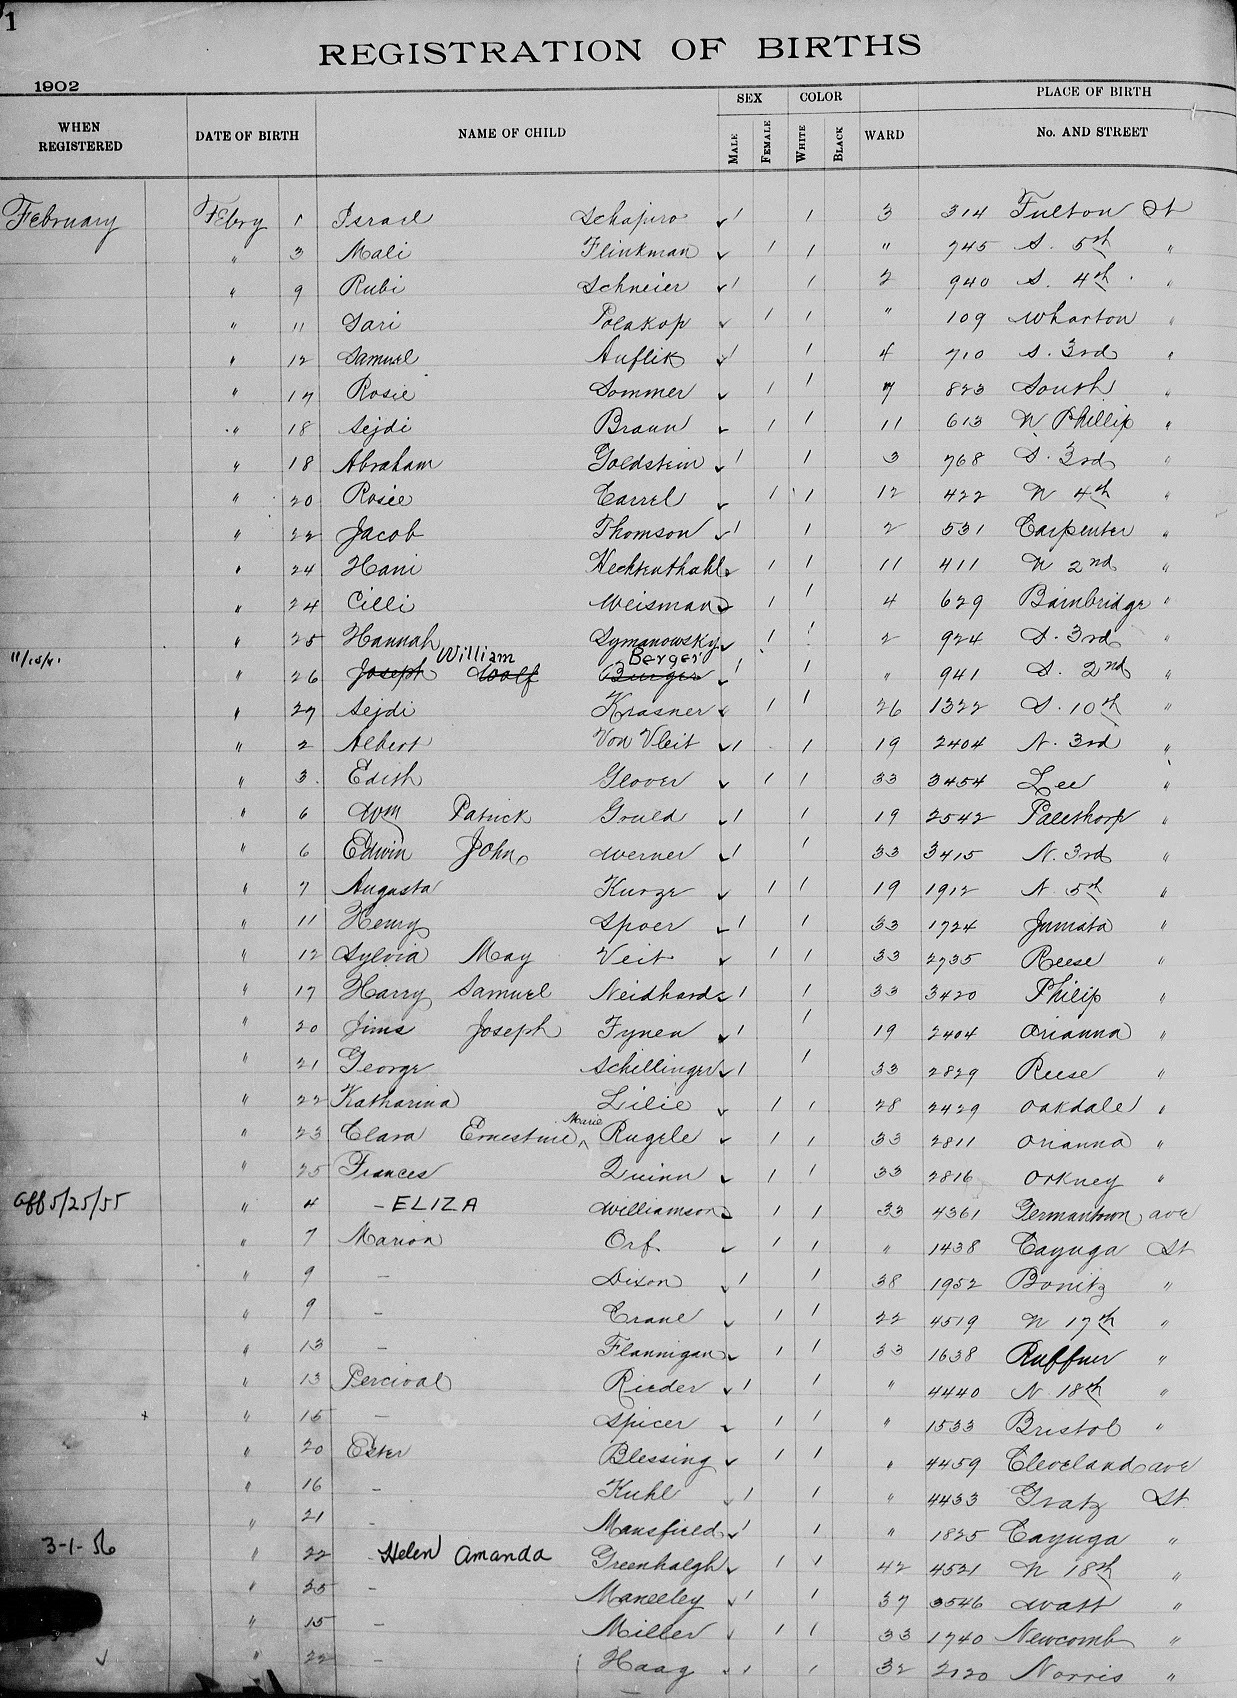 1
REGISTRATION OF BIRTHS
1902
WHEN REGISTERED DATE OF BIRTH NAME OF CHILD SEX MALE FEMALE COLOR WHITE BLACK WARD PLACE OF BIRTH No. AND STREET
February Febry 1 Israel Schapiro ✓ 1 1 3 314 Fulton St
" 3 Mali Flinkman ✓ 1 1 " 745 S. 5th "
" 9 Rubi Schneier ✓ 1 1 2 940 S. 4th "
" 11 Sari Polakop ✓ 1 1 " 109 Wharton "
" 12 Samuel Auflik ✓ 1 1 4 710 S. 3rd "
" 17 Rosie Sommer ✓ 1 1 7 823 South "
" 18 Sejdi Braun ✓ 1 1 11 613 N Phillip "
" 18 Abraham Goldstein ✓ 1 1 3 768 S. 3rd "
" 20 Rosie Carrel ✓ 1 1 12 422 N 4th "
" 22 Jacob Thomson ✓ 1 1 2 531 Carpenter "
" 24 Hani Hechtenthahl ✓ 1 1 11 411 N 2nd "
" 24 Cilli Weisman ✓ 1 1 4 629 Bambridge "
" 25 Hannah Symanowsky ✓ 1 1 2 924 S. 3rd "
William Berger
" 26 Joseph Wolf Burger ✓ 1 1 " 941 S. 2nd "
" 27 Sejdi Krasner ✓ 1 1 26 1322 S. 10th "
" 2 Albert Von Vleit ✓ 1 1 19 2404 N. 3rd "
" 3 Edith Glover ✓ 1 1 33 3454 Lee "
" 6 Wm Patrick Gould ✓ 1 1 19 2542 Palethorp "
" 6 Edwin John Werner ✓ 1 1 33 3415 N. 3rd "
" 7 Augusta Kurze ✓ 1 1 19 1912 N 5th "
" 11 Henry Spoer ✓ 1 1 33 1724 Juniata "
" 12 Sylvia May Veit ✓ 1 1 33 2735 Reese "
" 17 Harry Samuel Neidhard ✓ 1 1 33 3420 Philip "
" 20 Jims Joseph Fynen ✓ 1 1 19 2404 Orianna "
" 21 George Schillinger ✓ 1 1 33 2829 Reese "
" 22 Katharina Lilie ✓ 1 1 28 2429 Oakdale "
Marie
" 23 Clara Ernestine Rugele ✓ 1 1 33 2811 Orianna "
" 25 Frances Quinn ✓ 1 1 33 2816 Orkney "
Aff 5/25/55 " 4 - ELIZA Williamson ✓ 1 1 33 4361 Germantown ave
" 7 Marion Orf ✓ 1 1 " 1438 Cayuga St
" 9 - Dixon ✓ 1 1 38 1952 Bonitz "
" 9 - Crane ✓ 1 1 22 4519 N 17th "
" 13 - Flannigan ✓ 1 1 33 1638 Ruffner "
" 13 Percival Rieder ✓ 1 1 " 4440 N 18th "
+ " 15 - Spicer ✓ 1 1 " 1533 Bristol "
" 20 Ester Blessing ✓ 1 1 " 4459 Cleveland ave
" 16 - Kuhl ✓ 1 1 " 4433 Gratz St
" 21 - Mansfield ✓ 1 1 " 1825 Cayuga "
3-1-56 " 22 - Helen Amanda Greenhalgh ✓ 1 1 42 4521 N 18th "
" 25 - Maneeley ✓ 1 1 37 3546 Watt "
" 15 - Miller ✓ 1 1 33 1740 Newcomb "
✓ " 22 - Haag ✓ 1 1 32 2120 Norris "